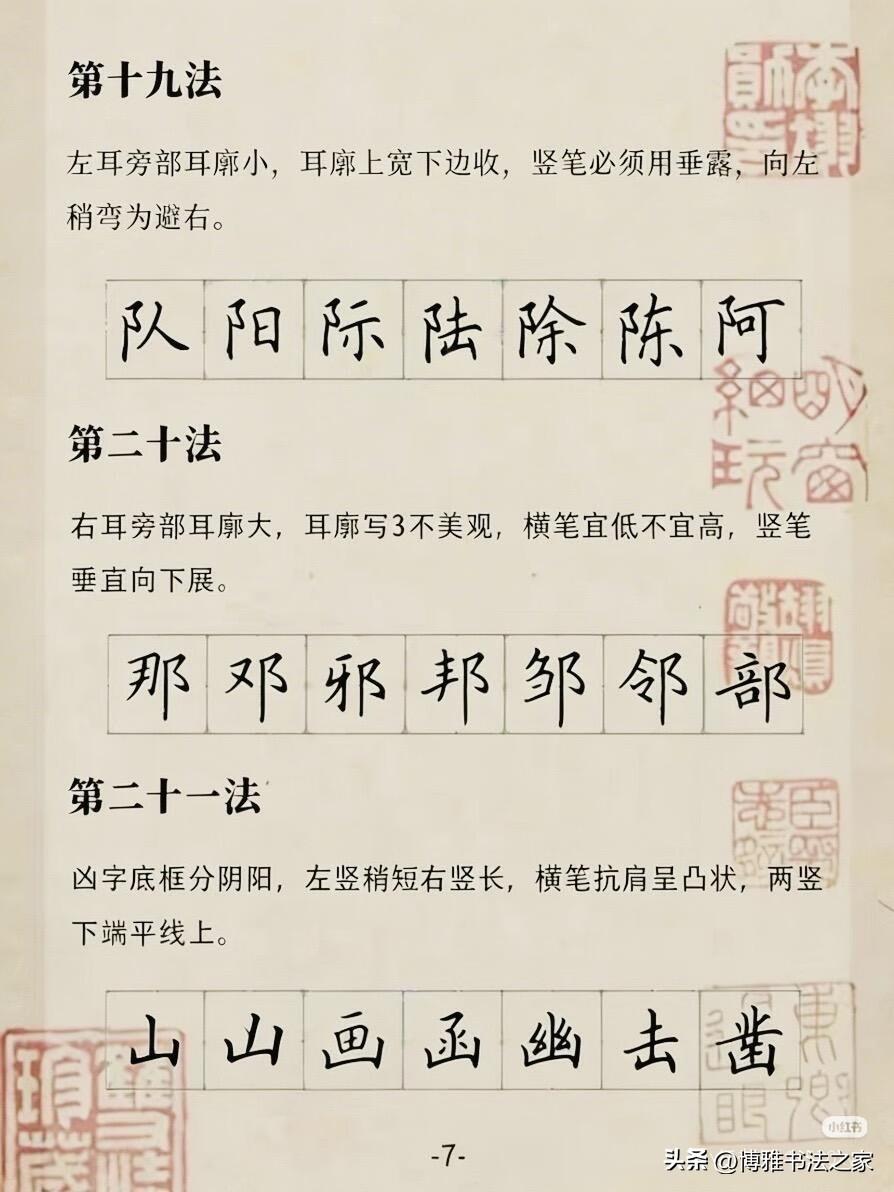 第十九法
左耳旁部耳廓小，耳廓上宽下边收，竖笔必须用垂露，向左
稍弯为避右。
队阳际陆除陈阿
第二十法
右耳旁部耳廓大，耳廓写3不美观，横笔宜低不宜高，竖笔
垂直向下展。
那邓邪邦邹邻部
第二十一法
凶字底框分阴阳，左竖稍短右竖长，横笔抗肩呈凸状，两竖
下端平线上。
山山画函幽击凿
小红书
-7-
头条 @博雅书法之家